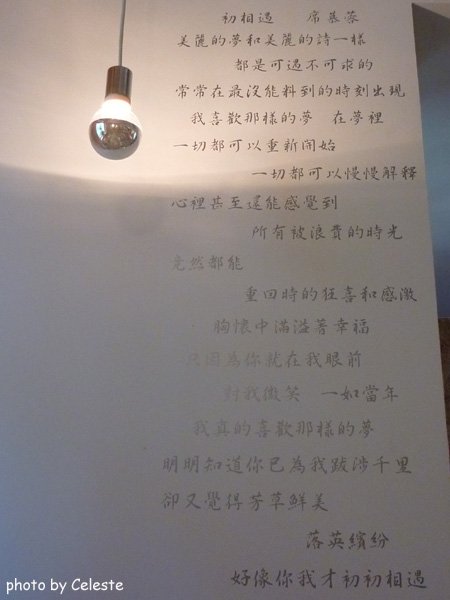 初相遇　席慕蓉
美麗的夢和美麗的詩一樣
都是可遇不可求的
常常在最沒能料到的時刻出現
我喜歡那樣的夢　在夢裡
一切都可以重新開始
一切都可以慢慢解釋
心裡甚至還能感覺到
所有被浪費的時光
竟然都能
重回時的狂喜和感激
胸懷中滿溢著幸福
只因為你就在我眼前
對我微笑　一如當年
我真的喜歡那樣的夢
明明知道你已為我跋涉千里
卻又覺得芳草鮮美
落英繽紛
好像你我才初初相遇
photo by Celeste